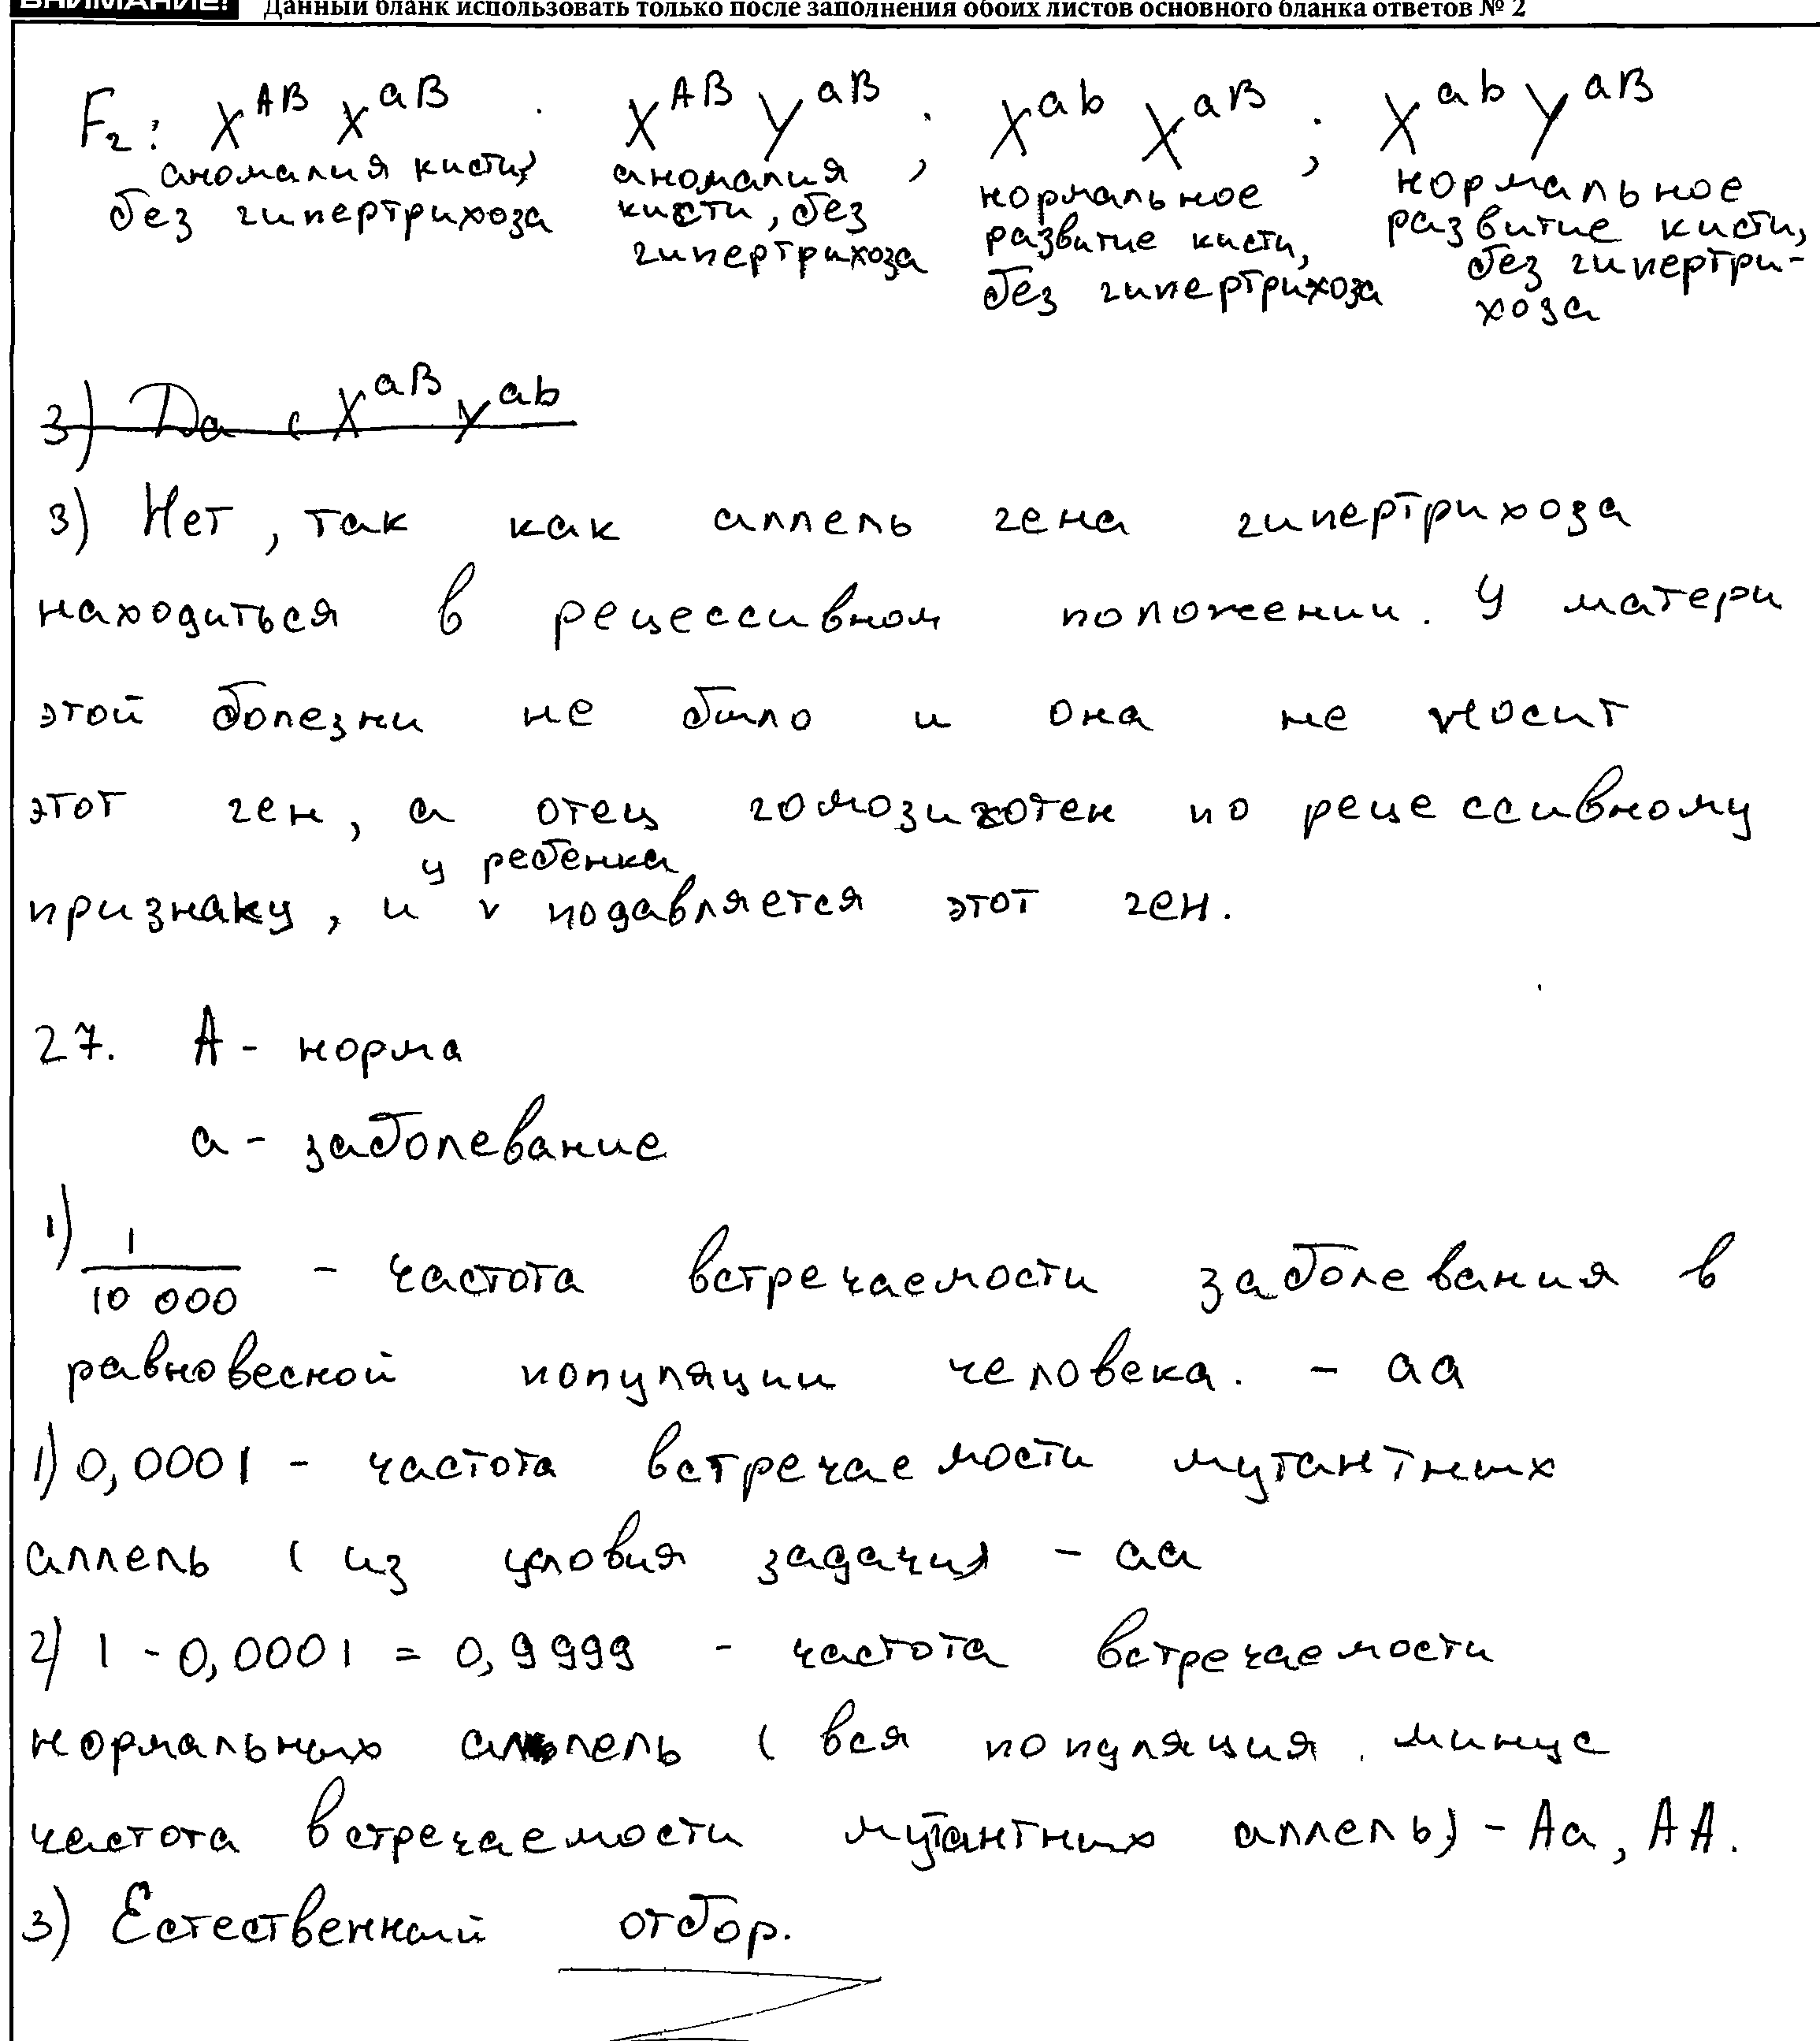 ВНИМАНИЕ! Данный бланк использовать только после заполнения обоих листов основного бланка ответов № 2
F₂: X^AB X^aB . X^AB Y^aB ; X^ab X^aB ; X^ab Y^aB
аномалия кисти, аномалия нормальное нормальное
без гипертрихоза кисти, без развитие кисти, развитие кисти,
гипертрихоза без гипертрихоза без гипертри-
хоза
3) Да ( X^aB Y^ab
3) Нет, так как аллель гена гипертрихоза
находиться в рецессивном положении. У матери
этой болезни не было и она не носит
этот ген, а отец гомозиготен по рецессивному
признаку, и у ребенка подавляется этот ген.
27. А - норма
а - заболевание
1) 1/10 000 - частота встречаемости заболевания в
равновесной популяции человека. - аа
1) 0,0001 - частота встречаемости мутантных
аллель ( из условия задачи) - аа
2) 1 - 0,0001 = 0,9999 - частота встречаемости
нормальных аллель ( вся популяция минус
частота встречаемости мутантних аллель) - Аа, АА.
3) Естественный отбор.